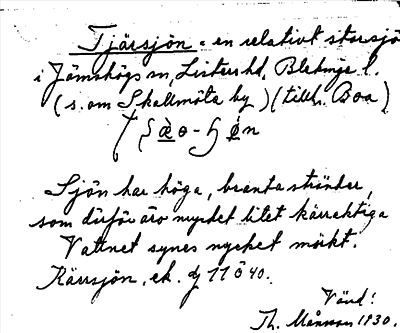 Tjärsjön = en relativt stor sjö
i Jämshögs sn, Listers hd, Blekinge l.
(s. om Skallmöta by) (tillh. Boa)
Sjön har höga, branta stränder,
som därför äro mycket litet kärraktiga
Vattnet synes mycket mörkt.
Kärrsjön, ek. bl 11 ö 40.
Vänd!
Th. Månsson 1930.